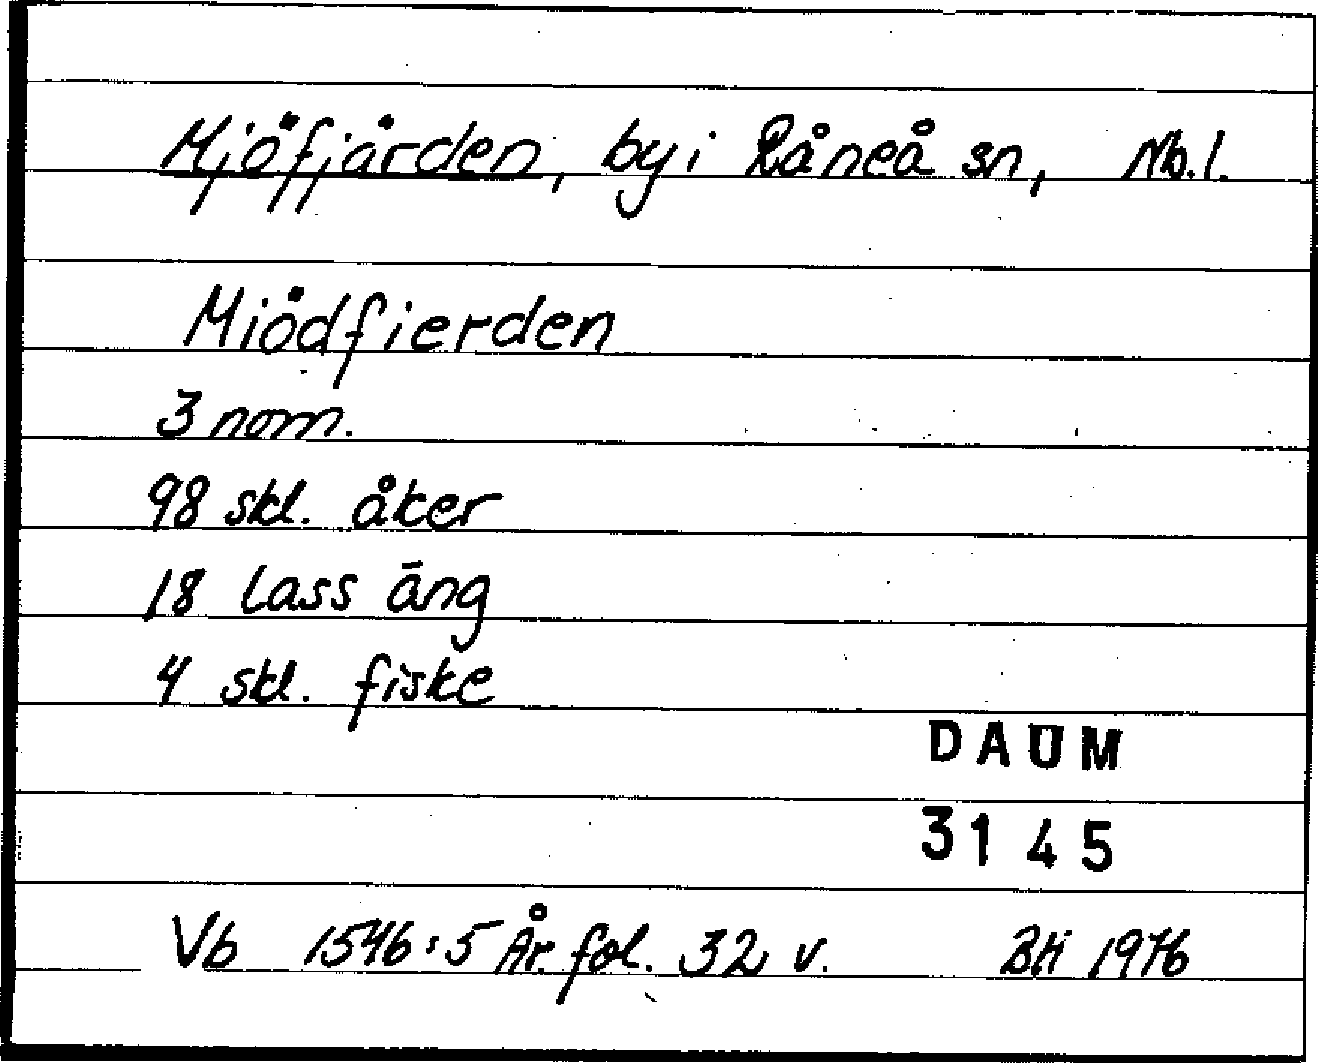 Mjöfjärden, by i Råneå sn, Nb.l.
Miödfierden
3 nom.
98 skl. åker
18 lass äng
4 skl. fiske
DAUM
3145
Vb 1546:5 År. fol. 32 v. BH 1976